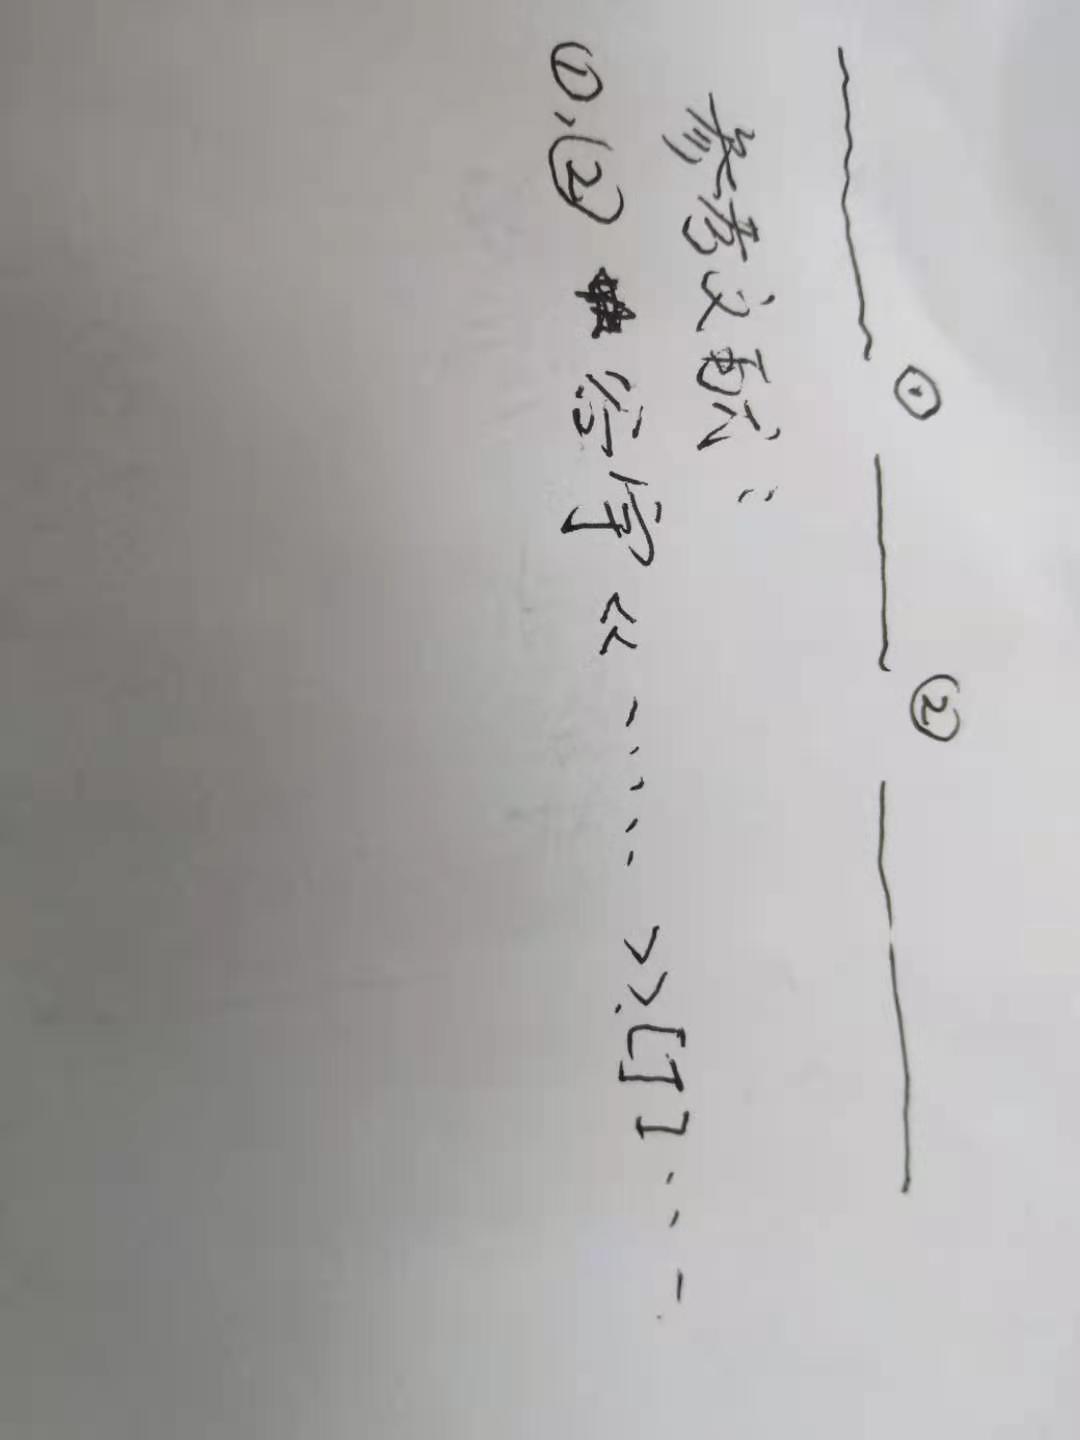 ① ②
参考文献：
①、② 徐宇《.....》.[J]...